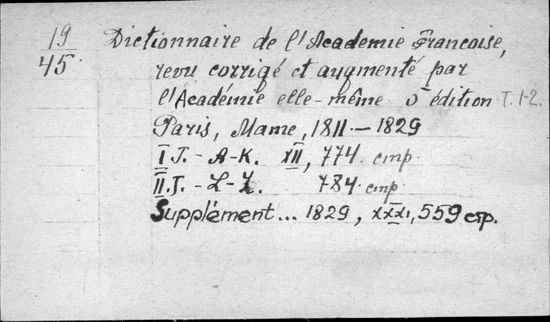 19
45
Dictionnaire de l'Academie Francoise,
revu corrigé et augmenté par
l'Académie elle-même 5 édition T. 1-2.
Paris, Mame, 1811 - 1829
I T. - A-K. XII, 774 стр
II T. - L-Z. 784 стр
Supplément... 1829, XXXI, 559 стр.